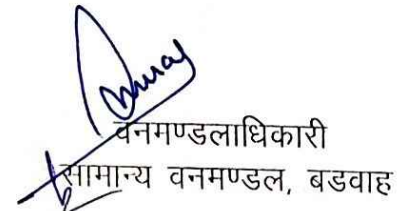 वनमण्डलाधिकारी
सामान्य वनमण्डल, बडवाह